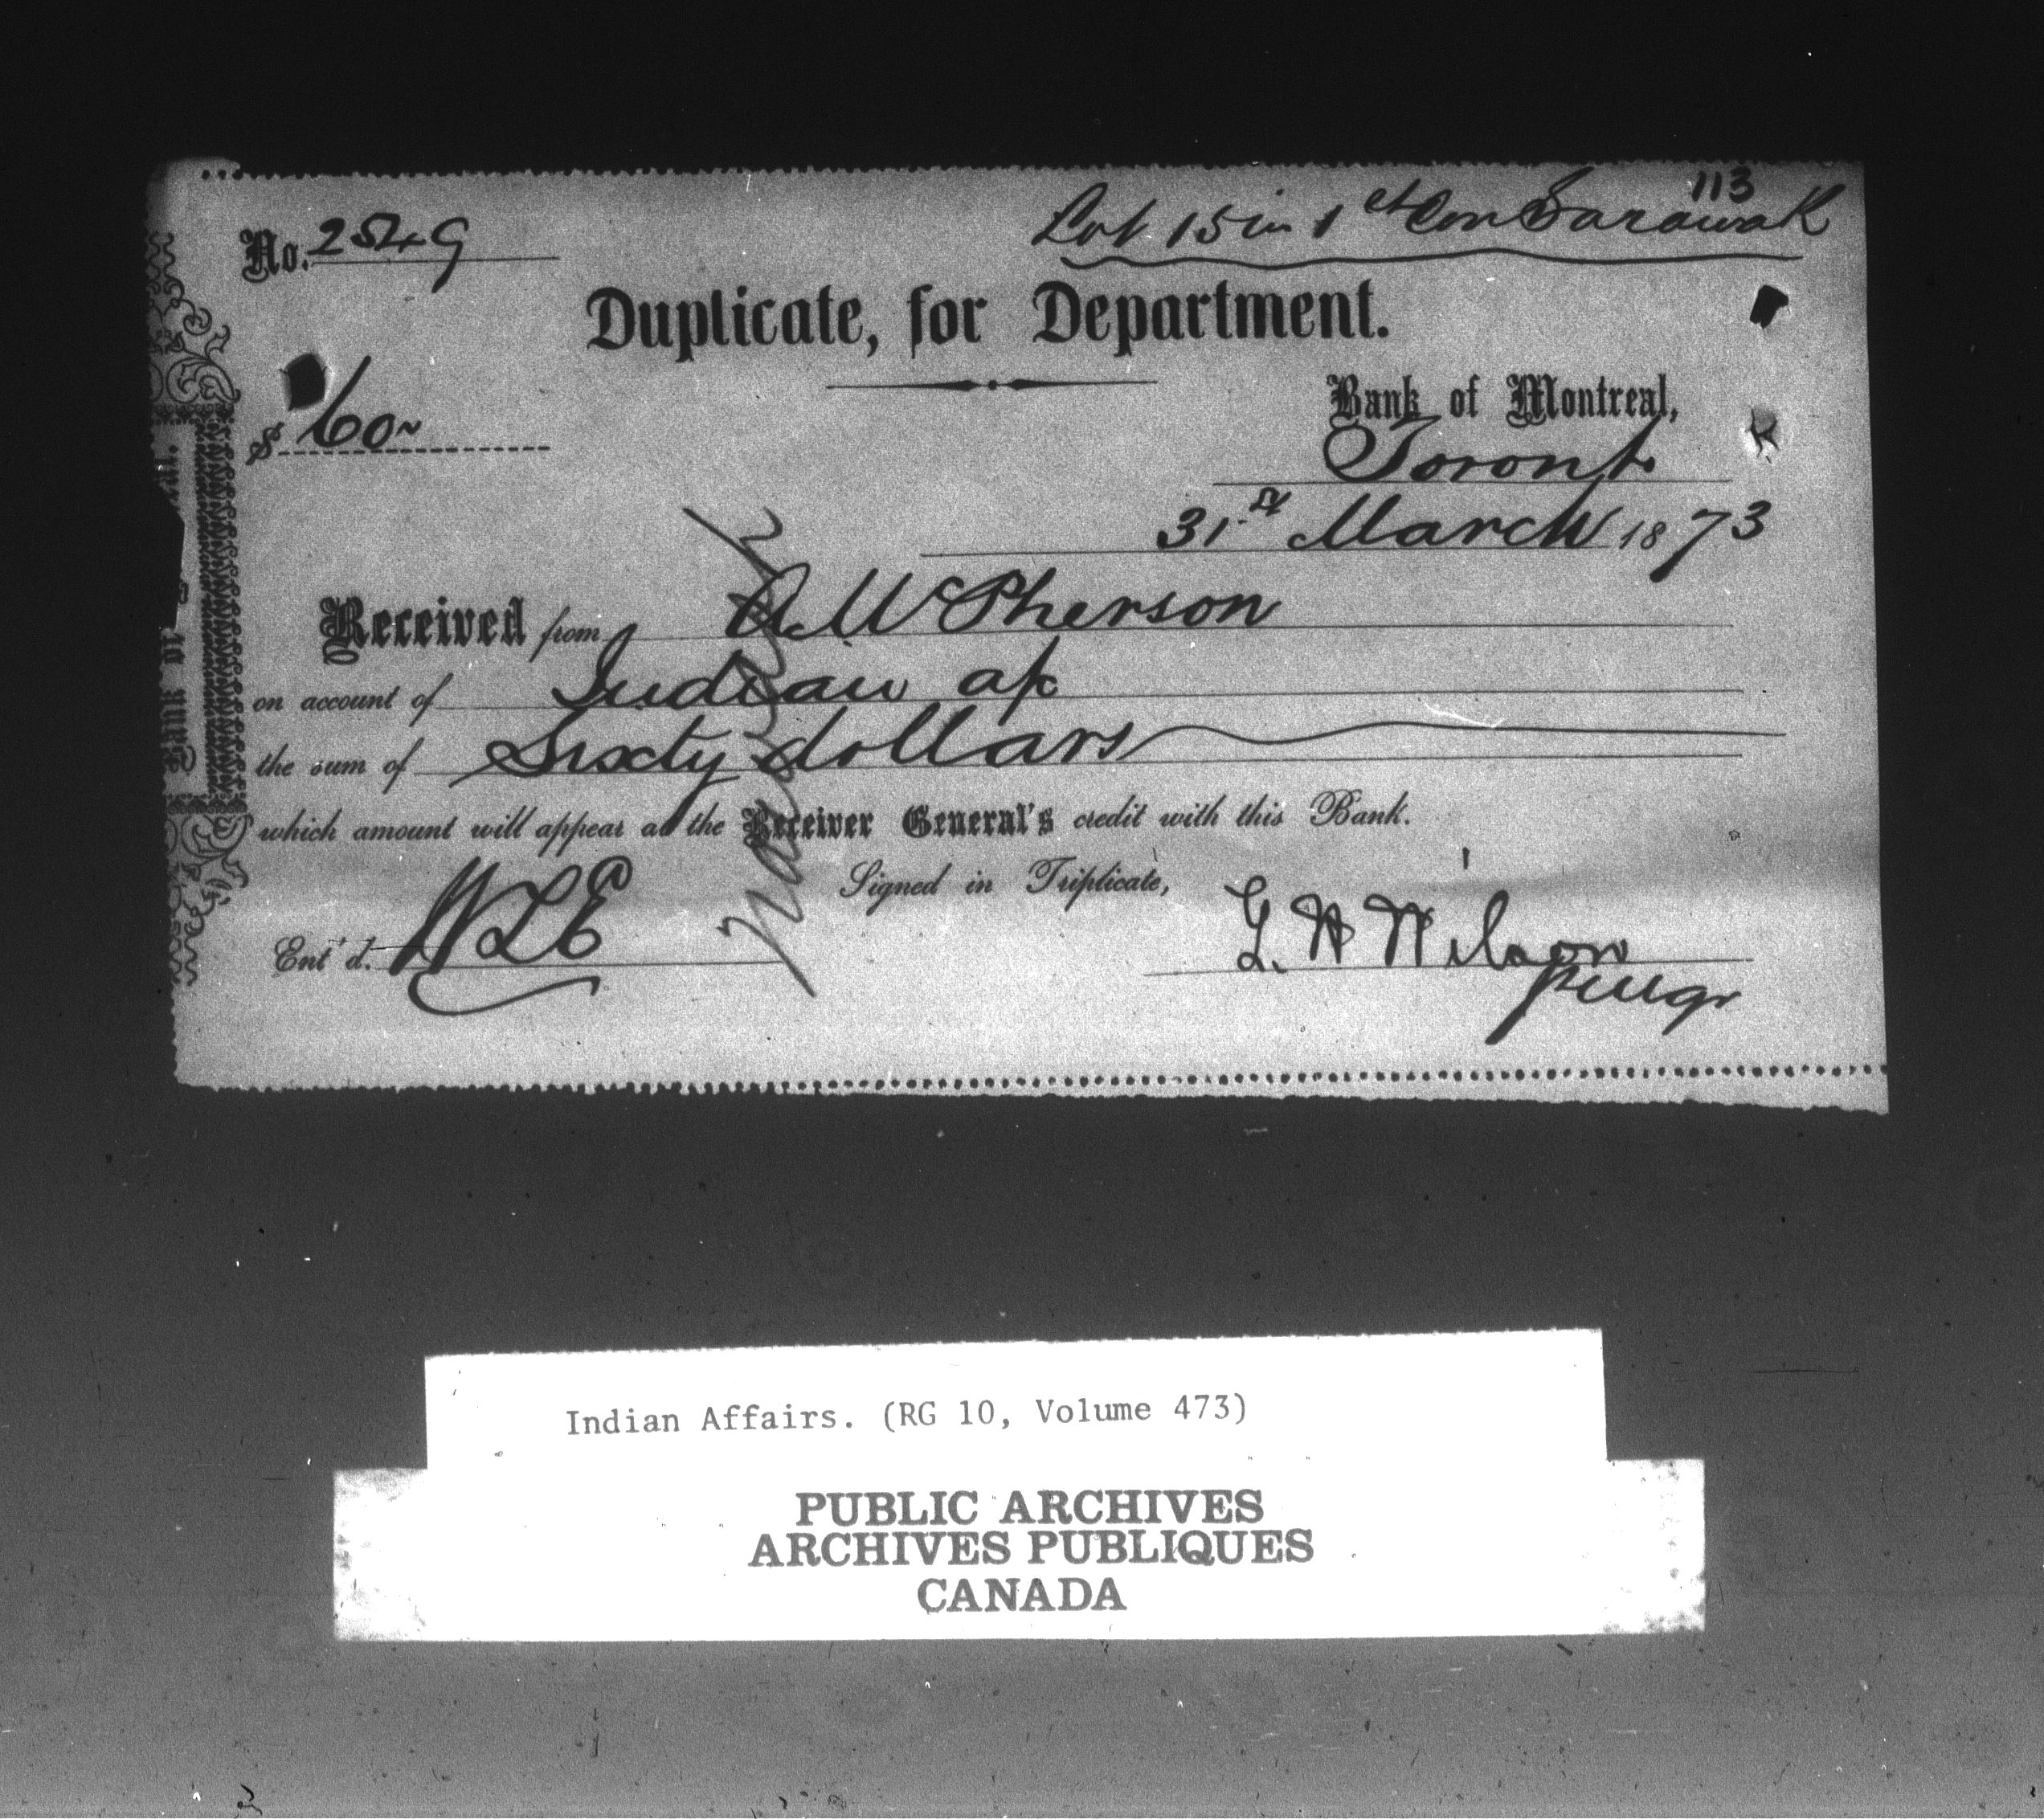 113
Lot 15 in 1st Con Sarawak
No. 2549
Duplicate, for Department.
$ 60
Bank of Montreal,
Toronto
31st March 1873
Received from A McPherson
on account of Indian a/c
the sum of Sixty dollars
which amount will appear at the Receiver General's credit with this Bank.
Signed in Triplicate,
Ent'd. WLE
G. W Wilson
p Mgr
Bank of
Indian Affairs. (RG 10, Volume 473)
PUBLIC ARCHIVES
ARCHIVES PUBLIQUES
CANADA